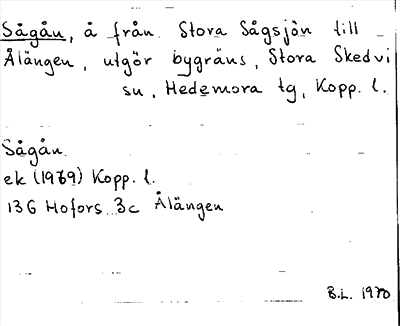 Sågån, å från Stora Sågsjön till
Ålängen, utgör bygräns, Stora Skedvi
sn, Hedemora tg, Kopp. l.
Sågån
ek (1969) Kopp. l.
13G Hofors 3c Ålängen
B.L. 1970